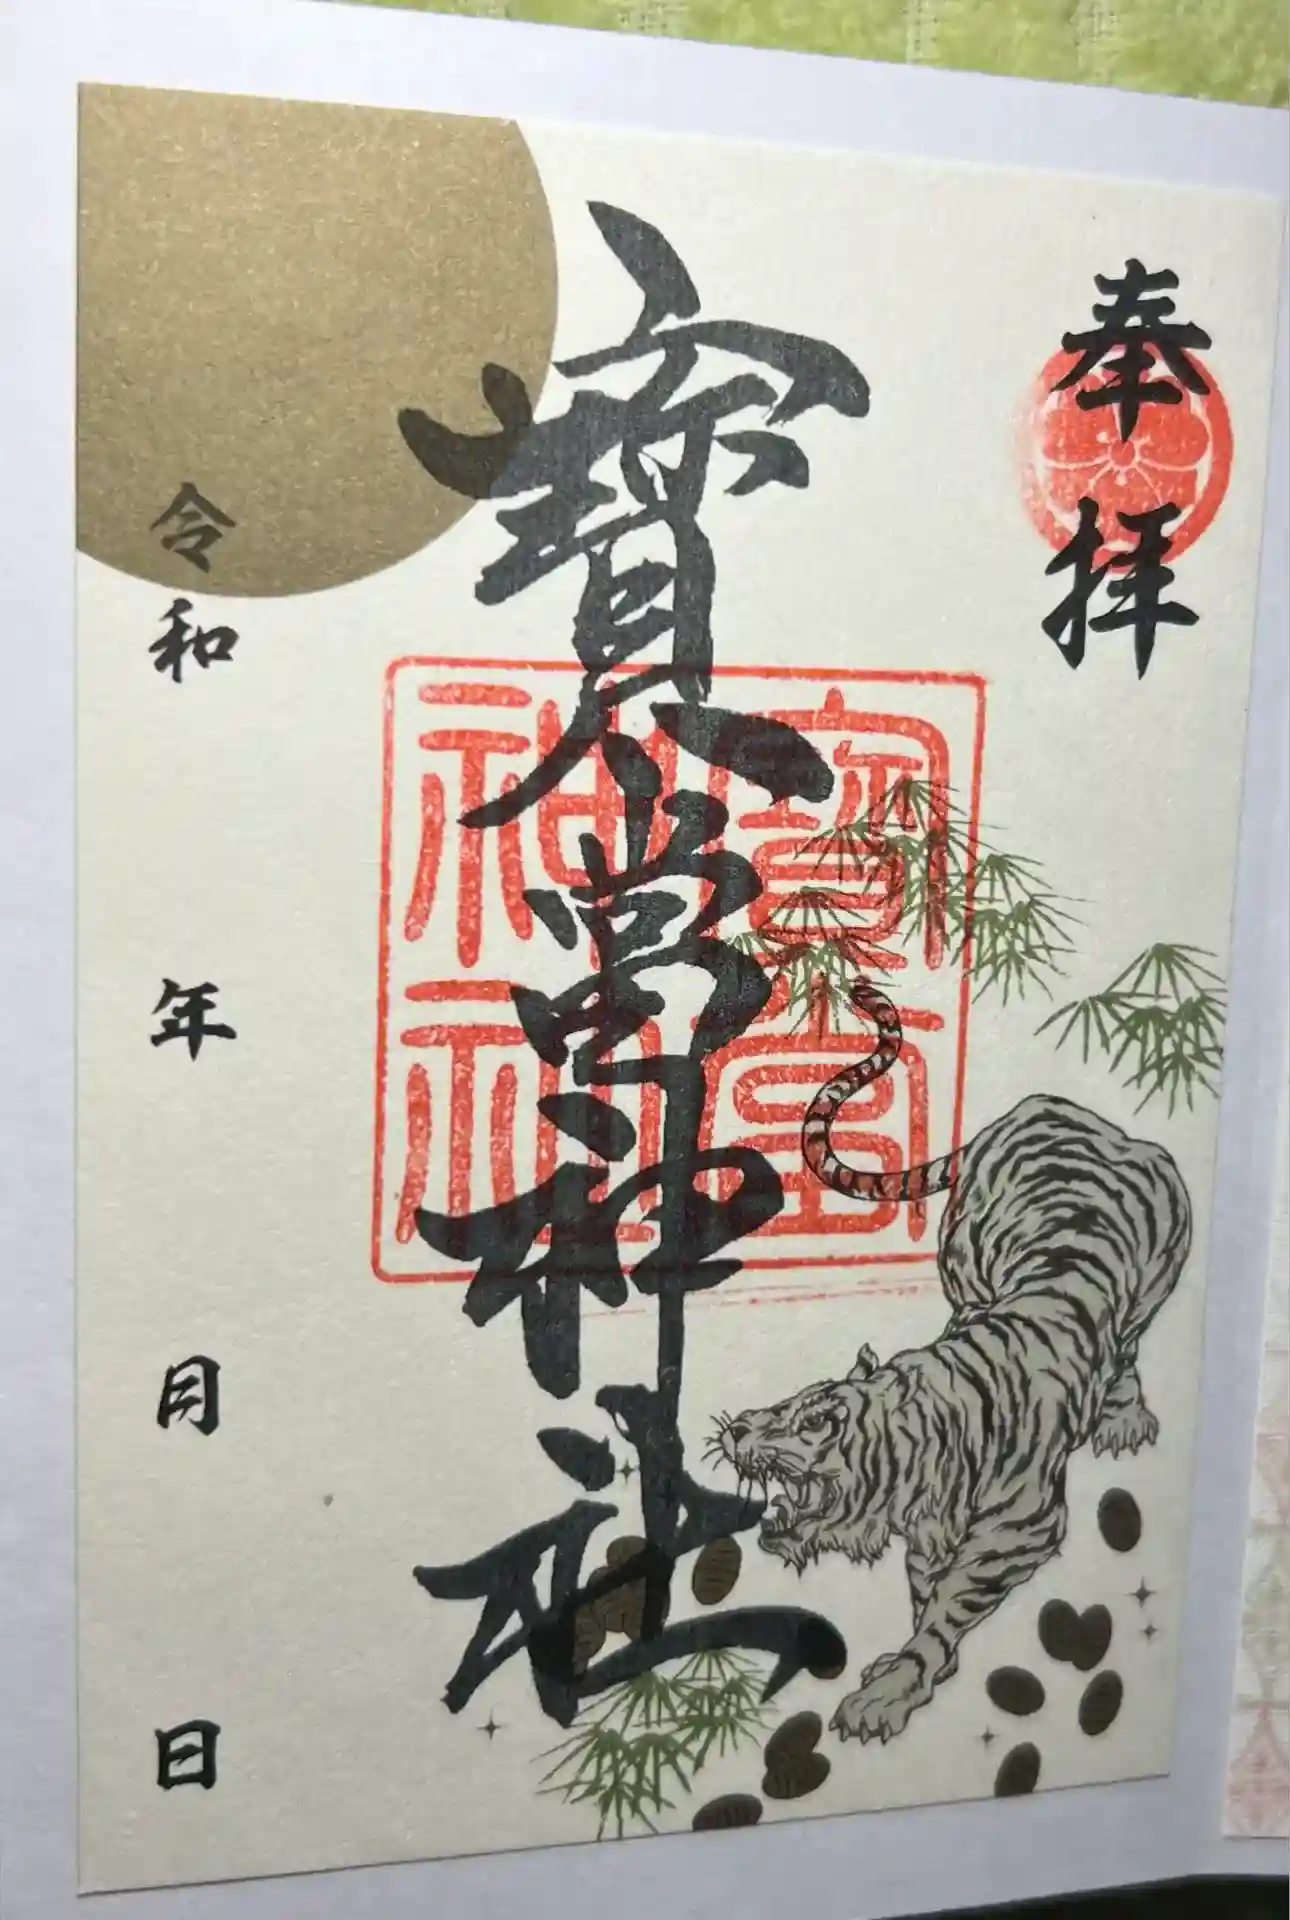 奉拝
寳當神社
寳當神社
令和 年 月 日